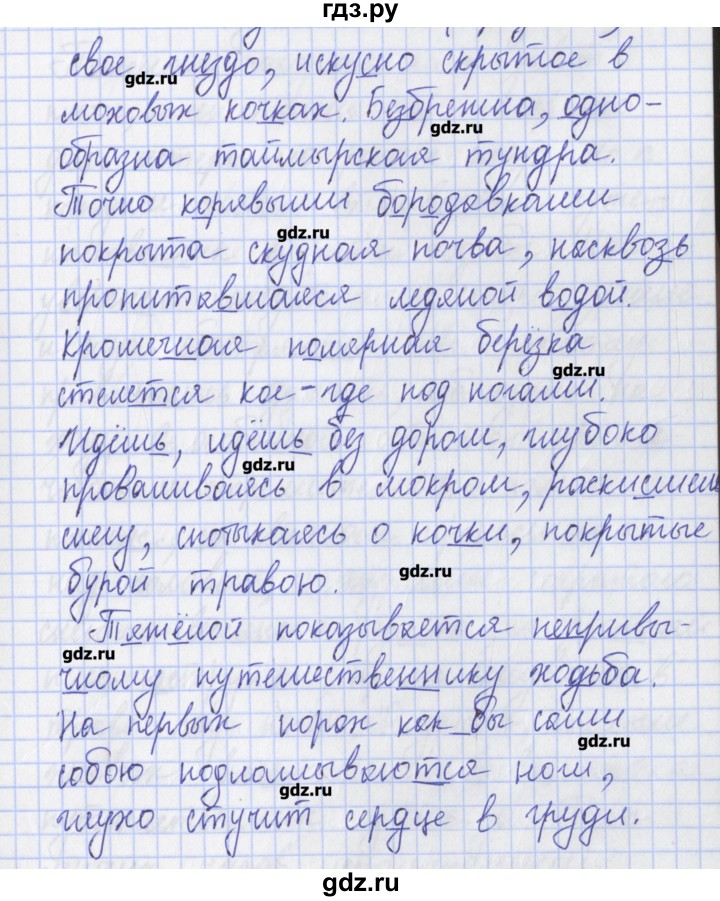 гдз.ру
свое гнездо, искусно скрытое в
gdz.ru
моховых кочках. Безбрежна, одно-
gdz.ru
образна таймырская тундра.
Точно корявыми бородавками
gdz.ru
покрыта скудная почва, насквозь
пропитавшаяся ледяной водой.
gdz.ru
Крошечная полярная берёзка
gdz.ru
стелется кое-где под ногами.
Идёшь, идёшь без дорог, глубоко
gdz.ru
проваливаясь в мокром, раскисшем
снегу, спотыкаясь о кочки, покрытые
бурой травою.
gdz.ru
Тяжёлой показывается непривы-
gdz.ru
чному путешественнику ходьба.
На первых порах как бы сами
gdz.ru
собою подламываются ноги,
gdz.ru
глухо стучит сердце в груди.
gdz.ru